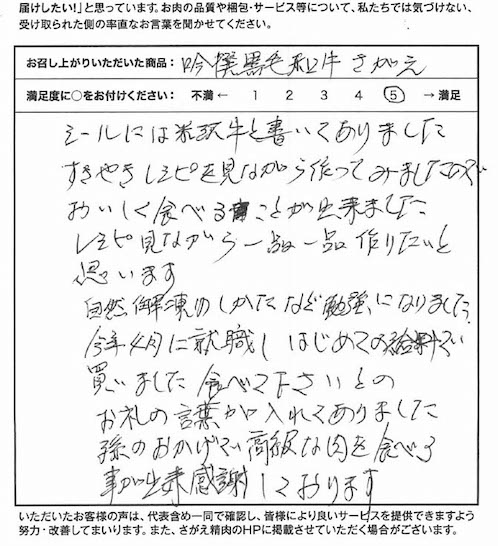 届けしたい!」と思っています。お肉の品質や梱包・サービス等について、私たちでは気づけない、
受け取られた側の率直なお言葉を聞かせてください。
お召し上がりいただいた商品： 吟撰黒毛和牛 さがえ
満足度に○をお付けください： 不満 ← 1 2 3 4 5 → 満足
シールには米沢牛と書いてありました
すきやきレシピを見ながら作ってみましたので
おいしく食べることが出来ました
レシピ見ながら一品一品作りたいと
思います
自然解凍のしかたなど勉強になりました
今年4月に就職し はじめての給料で
買いました 食べて下さいとの
お礼の言葉が入れてありました
孫のおかげで高級な肉を食べる
事が出来感謝しております
いただいたお客様の声は、代表含め一同で確認し、皆様により良いサービスを提供できますよう
努力・改善してまいります。また、さがえ精肉のHPに掲載させていただく場合がございます。